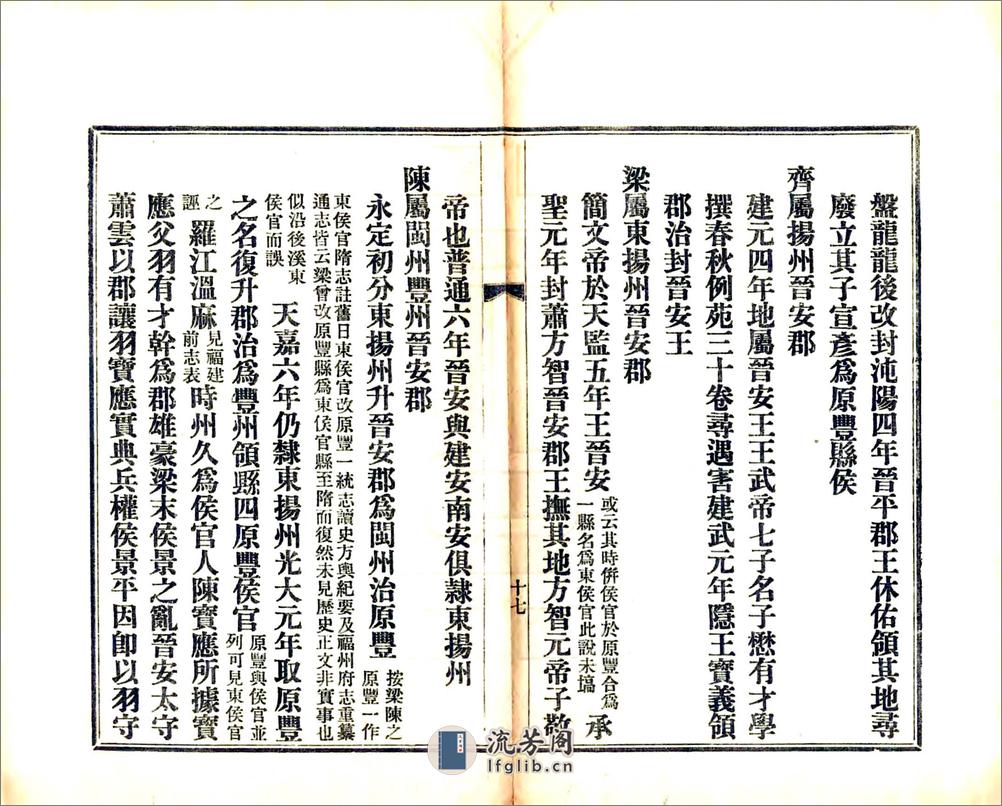 盤龍龍後改封沌陽四年晉平郡王休佑領其地尋
廢立其子宣彥爲原豐縣侯
齊屬揚州晉安郡
建元四年地屬晉安王王武帝七子名子懋有才學
撰春秋例苑三十卷尋遇害建武元年隱王寶義領
郡治封晉安王
梁屬東揚州晉安郡
簡文帝於天監五年王晉安或云其時併侯官於原豐合爲一縣名爲東侯官此說未塙承
聖元年封蕭方智晉安郡王撫其地方智元帝子敬
十七
帝也普通六年晉安與建安南安俱隸東揚州
陳屬閩州豐州晉安郡
永定初分東揚州升晉安郡爲閩州治原豐按梁陳之原豐一作
東侯官隋志註舊日東侯官改原豐一統志讀史方輿紀要及福州府志重纂
通志皆云梁曾改原豐縣爲東侯官縣至隋而復然未見歷史正文非實事也
似沿後溪東侯官而誤天嘉六年仍隸東揚州光大元年取原豐
之名復升郡治爲豐州領縣四原豐侯官原豐與侯官並列可見東侯官
之誣羅江溫麻見福建前志表時州久爲侯官人陳寶應所據寶
應父羽有才幹爲郡雄豪梁末侯景之亂晉安太守
蕭雲以郡讓羽寶應實典兵權侯景平因卽以羽守
流芳阁
lfglib.cn